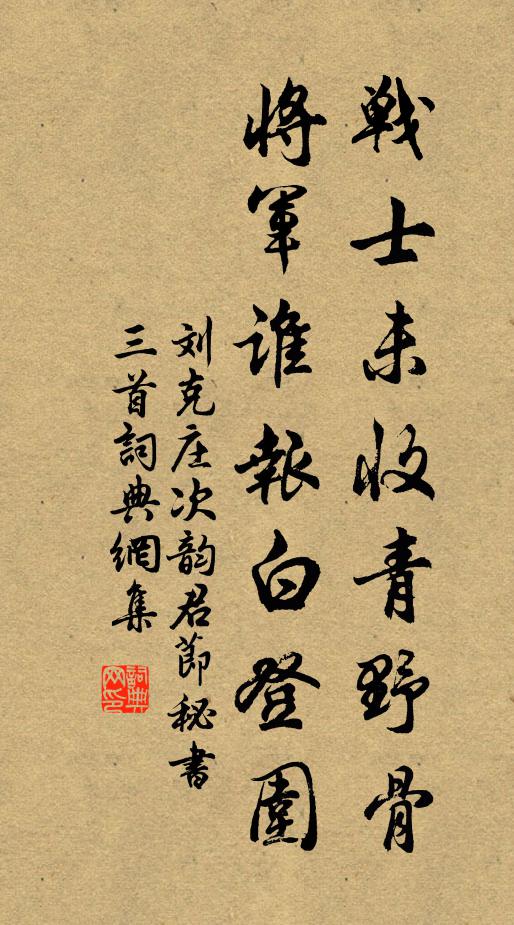 戦士未收青野骨
將軍誰報白登圍
刘克庄次韵君節秘書
三首詞典網集
詞典網印